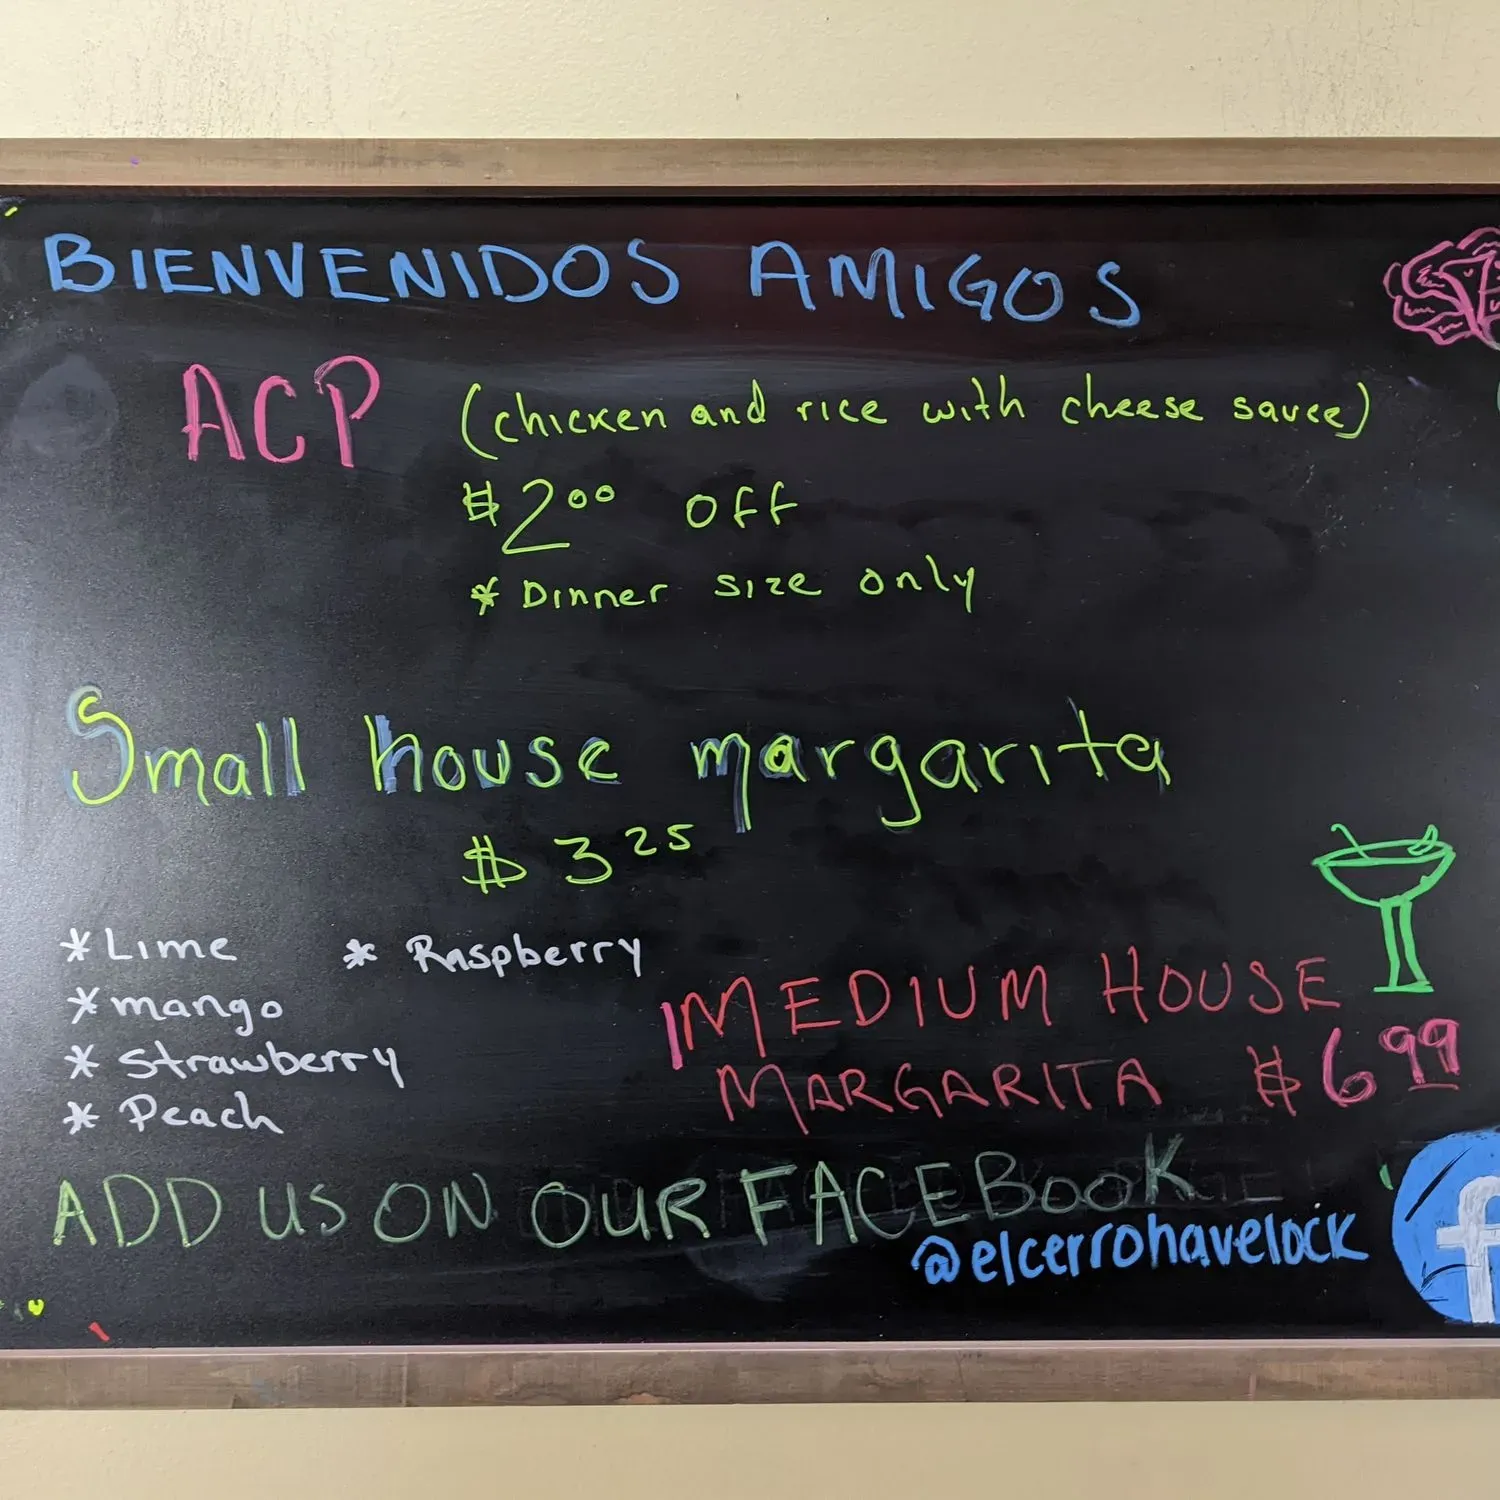 BIENVENIDOS AMIGOS
ACP (chicken and rice with cheese sauce)
$2.00 off
* Dinner size only
Small house margarita
$3.25
* Lime * Raspberry
* mango
* strawberry
* Peach
MEDIUM HOUSE
MARGARITA $6.99
ADD US ON OUR FACEBOOK
@elcerrohavelock
f